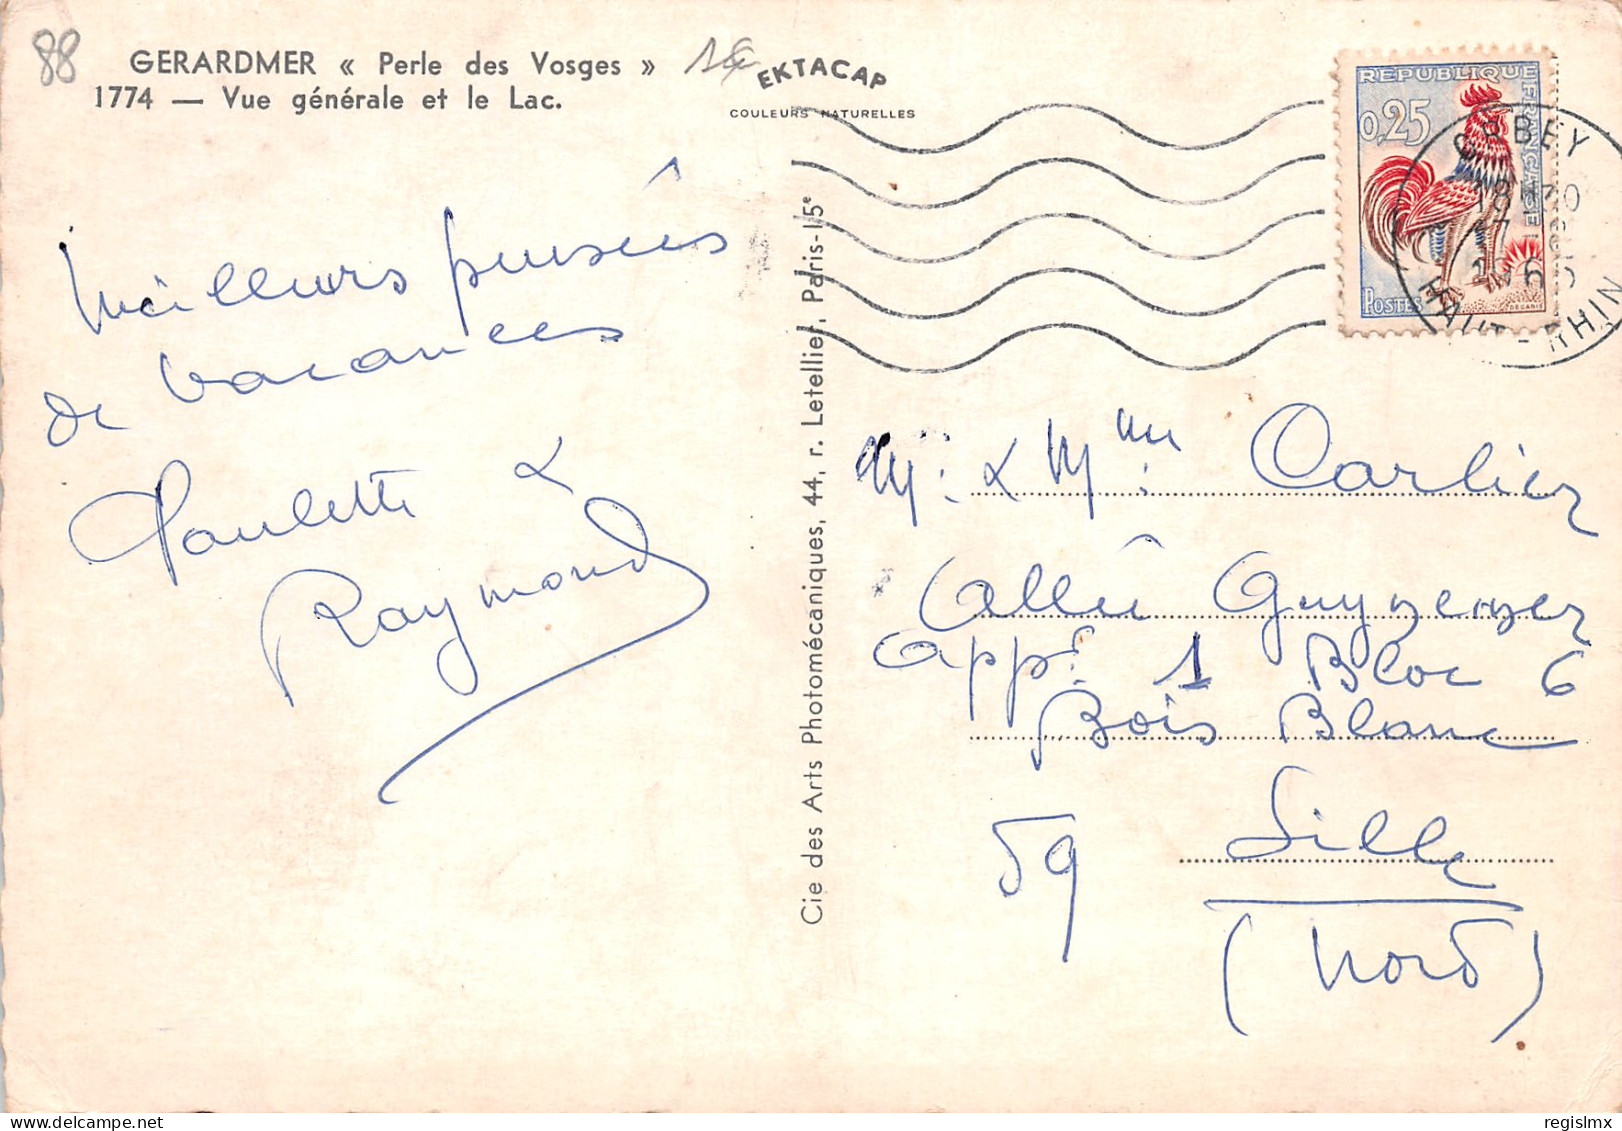 88
GERARDMER « Perle des Vosges »
1774 — Vue générale et le Lac.
1€
EKTACAP
COULEURS NATURELLES
REPUBLIQUE FRANÇAISE
0,25
POSTES
DECARIS
ORBEY
18 H30
17
1965
HAUT-RHIN
Meilleurs pensées
de vacances
Paulette &
Raymond
Cie des Arts Photomécaniques, 44, r. Letellier, Paris-15e
M. & Mme. Carlier
Allée Guynemer
Appt. 1 Bloc 6
Bois Blanc
59 Lille
(Nord)
regislmx